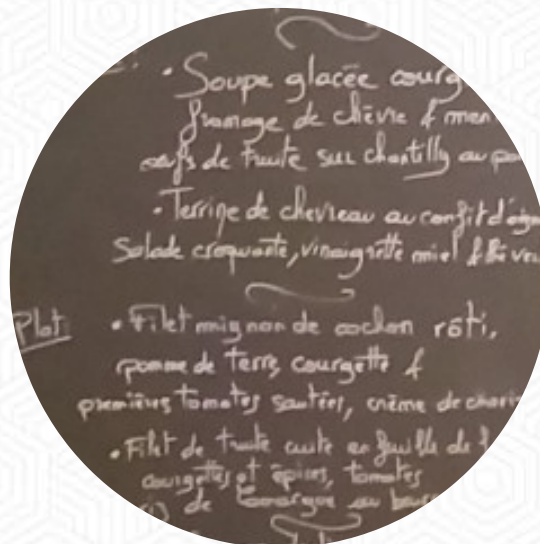 • Soupe glacée courg
fromage de chèvre & men
œufs de truite sur chantilly au po
• Terrine de chevreau au confit d'oign
Salade croquante, vinaigrette miel & thé ver
Plat • Filet mignon de cochon rôti,
pomme de terre, courgette &
premières tomates sautées, crème de chori
• Filet de truite cuite en feuille de
courgettes et épices, tomates
de Camargue au beurr